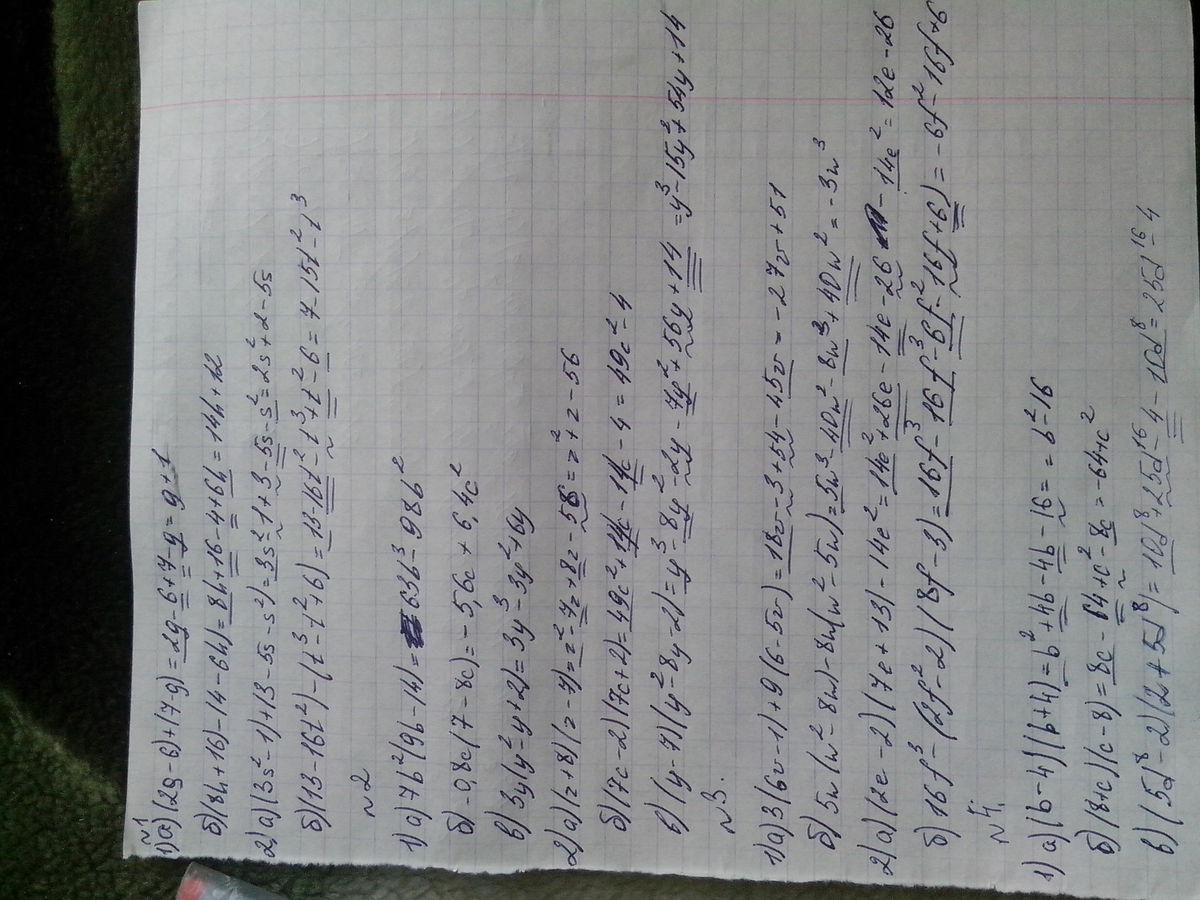 №1
1) а) (2g-6)+(7-g)=2g-6+7-g=g+1
б) (8h+16)-(4-6h)=8h+16-4+6h=14h+12
2) а) (3s²-1)+(3-5s-s²)=3s²-1+3-5s-s²=2s²+2-5s
б) (13-16t²)-(t³-t²+6)=13-16t²-t³+t²-6=7-15t²-t³
№2
1) а) 7b²(9b-14)=63b³-98b²
б) -0,8c(7-8c)=-5,6c+6,4c²
в) 3y(y²-y+2)=3y³-3y²+6y
2) а) (z+8)(z-7)=z²-7z+8z-56=z²+z-56
б) (7c-2)(7c+2)=49c²+14c-14c-4=49c²-4
в) (y-7)(y²-8y-2)=y³-8y²-2y-7y²+56y+14=y³-15y²+54y+14
№3.
1) а) 3(6v-1)+9(6-5v)=18v-3+54-45v=-27v+51
б) 5w(w²-8w)-8w(w²-5w)=5w³-40w²-8w³+40w²=-3w³
2) а) (2e-2)(7e+13)-14e²=14e²+26e-14e-26-14e²=12e-26
б) 16f³-(2f²-2)(8f-3)=16f³-16f³-6f²-16f+6)=-6f²-16f+6
№4.
1) а) (b-4)(b+4)=b²+4b-4b-16=b²-16
б) (8+c)(c-8)=8c-64+c²-8c=-64+c²
в) (5d⁸-2)(2+5d⁸)=10d⁸+25d¹⁶-4-10d⁸=25d¹⁶-4